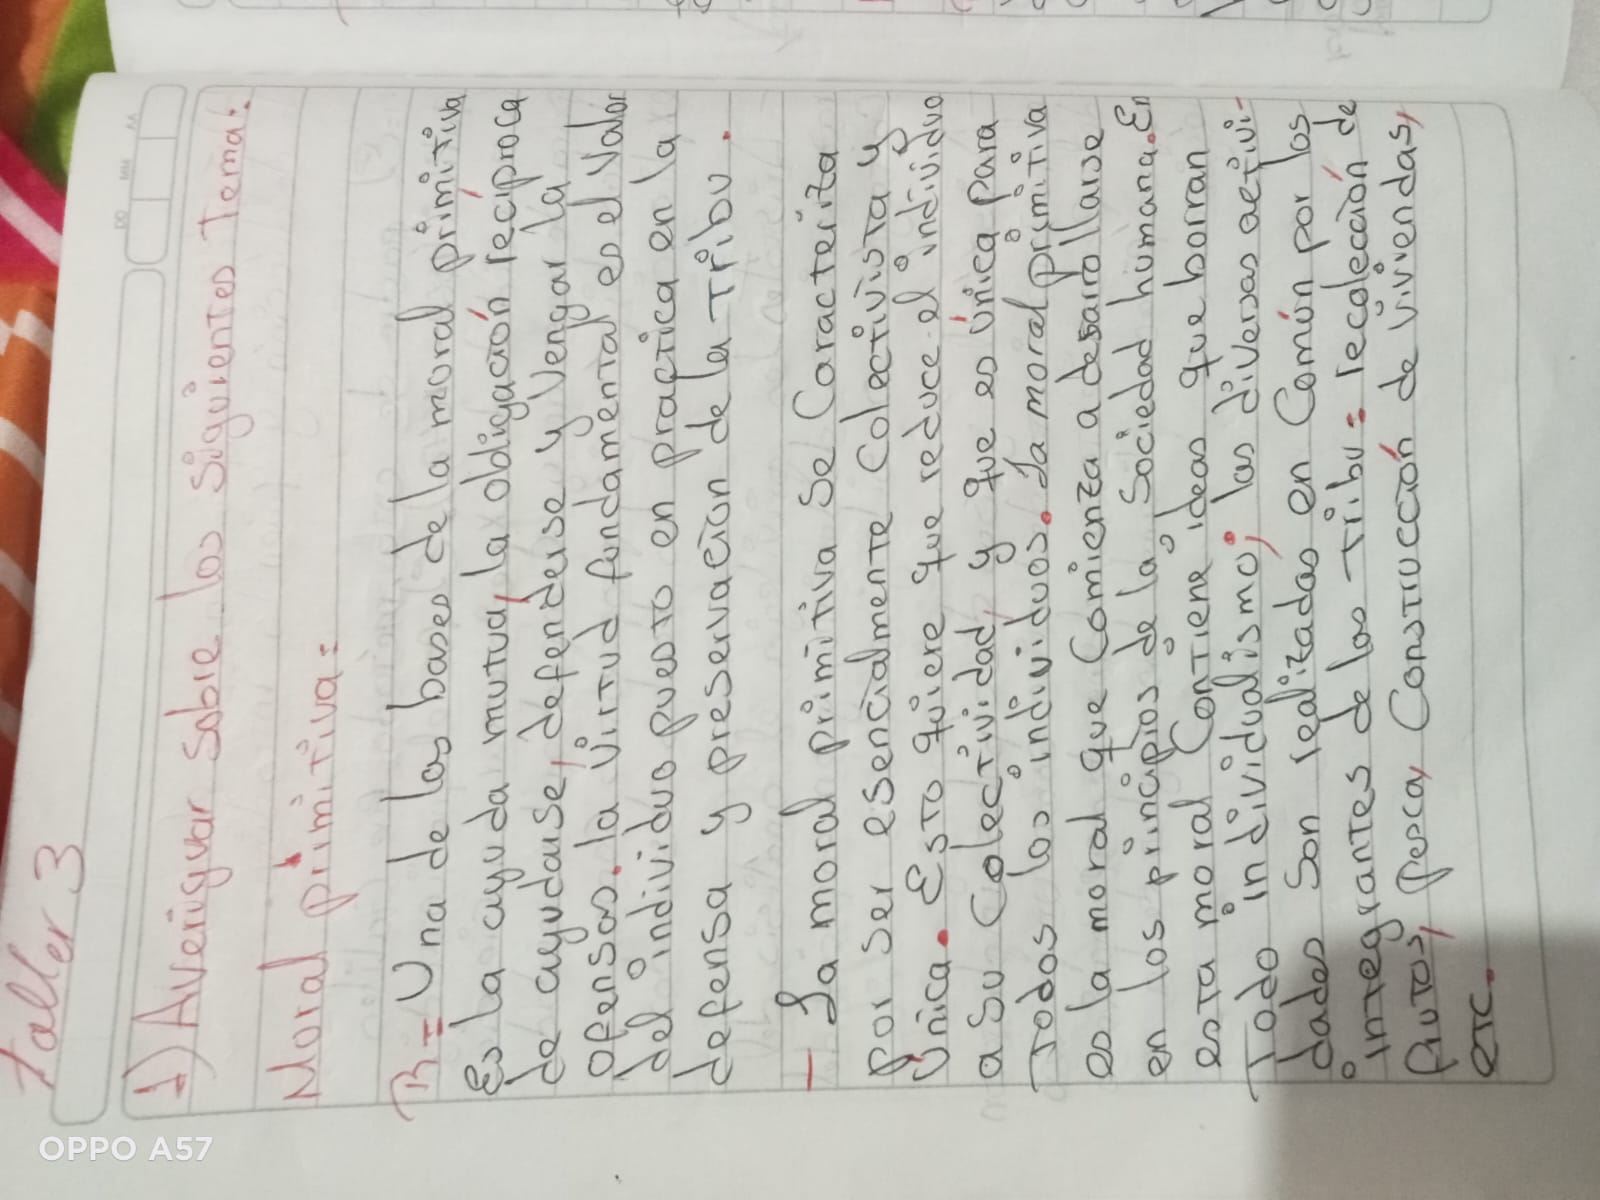 Taller 3
1) Averiguar sobre los siguientes Tema:
Moral primitiva:
R= Una de las bases de la moral primitiva
Es la ayuda mutua, la obligación recíproca
de ayudarse, defenderse y Vengar la
Ofensas. la Virtud fundamental es el Valor
del individuo puesto en practica en la
defensa y preservación de la Tribu.
- La moral primitiva Se Caracteriza
por Ser esencialmente Colectivista y
Única. Esto quiere que reduce el individuo
a Su Colectividad, y que es única para
Todos los individuos. La moral primitiva
es la moral que Comienza a desarollarse
en los principios de la Sociedad humana. En
esta moral Contiene ideas que borran
Todo individualismo; las diversas activi-
dades Son realizadas en Común por los
integrantes de las Tribu: recolección de
frutos, pesca, Construcción de viviendas,
etc.
OPPO A57